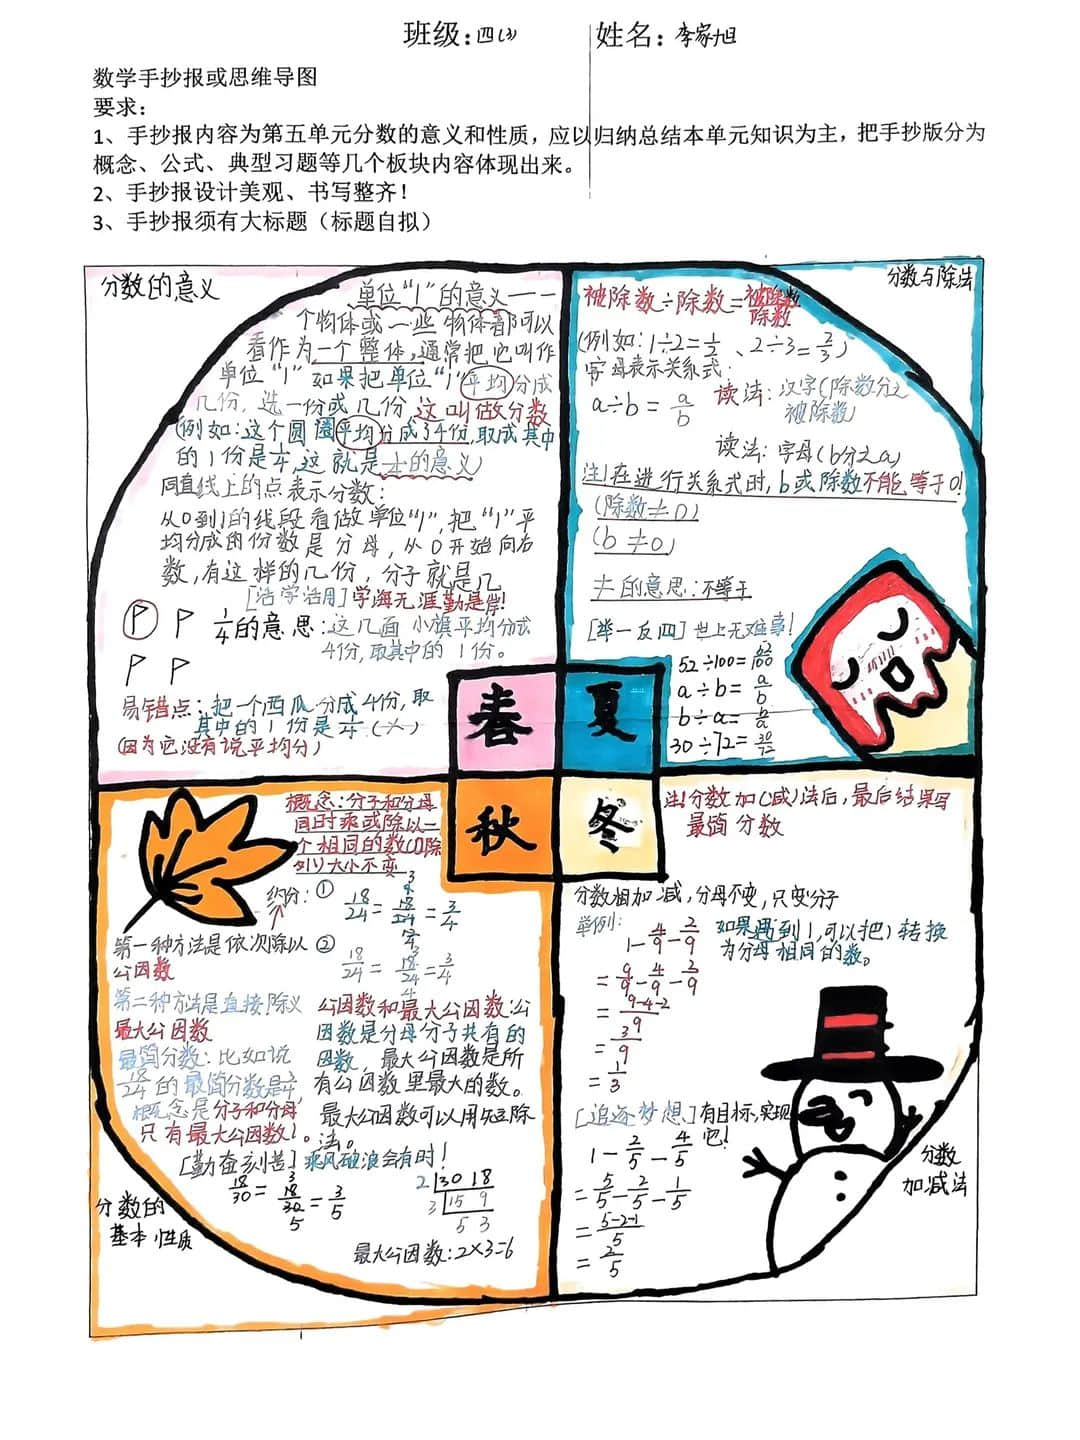 班级：四(3)
姓名：李家旭
数学手抄报或思维导图
要求：
1、手抄报内容为第五单元分数的意义和性质，应以归纳总结本单元知识为主，把手抄版分为
概念、公式、典型习题等几个板块内容体现出来。
2、手抄报设计美观、书写整齐！
3、手抄报须有大标题（标题自拟）
分数的意义
单位“1”的意义——一
个物体或一些物体都可以
看作为一个整体，通常把它叫作
单位“1”如果把单位“1”平均分成
几份，选一份或几份，这叫做分数
(例如:这个圆圈平均分成了4份,取成其中
的1份是1/4,这就是1/4的意义)
同直线上的点表示分数:
从0到1的线段看做单位“1”,把“1”平
均分成的份数是分母，从0开始向右
数,有这样的几份，分子就是几
[活学活用]学海无涯勤是岸!
P P
1/4的意思:这几面小旗平均分成
4份,取其中的1份。
P P
易错点:把一个西瓜分成4份,取
其中的1份是1/4(×)
(因为它没有说平均分)
分数与除法
被除数÷除数=被除数/除数
(例如:1÷2=1/2、2÷3=2/3)
字母表示关系式:
a÷b=a/b
读法:汉字(除数分之
被除数)
读法:字母(b分之a)
注!在进行关系式时,b或除数不能等于0!
(除数≠0)
(b≠0)
≠的意思:不等于
[举一反四]世上无难事!
52÷100=52/100
a÷b=a/b
b÷a=b/a
30÷72=30/72
春
夏
秋
冬
概念:分子和分母
同时乘或除以一
个相同的数(0除
外)大小不变
约分:①
18/24=18/24=3/4
第一种方法是依次除以
公因数
②
18/24=18/24=3/4
第二种方法是直接除以
最大公因数
最简分数:比如说
18/24的最简分数是3/4,
概念是分子和分母
只有最大公因数1。
公因数和最大公因数:公
因数是分母分子共有的
因数，最大公因数是所
有公因数里最大的数。
最大公因数可以用短除
法。
[勤奋刻苦]乘风破浪会有时!
18/30=18/30=3/5
2 30 18
3 15 9
5 3
最大公因数:2×3=6
分数的
基本性质
注!分数加(减)法后,最后结果写
最简分数
分数相加减,分母不变,只变分子
举例:
1-4/9-2/9
=9/9-4/9-2/9
=9-4-2/9
=3/9
=1/3
如果遇到1,可以把1转换
为分母相同的数。
[追逐梦想]有目标,实现
它!
1-2/5-4/5
=5/5-2/5-1/5
=5-2-1/5
=2/5
分数
加减法